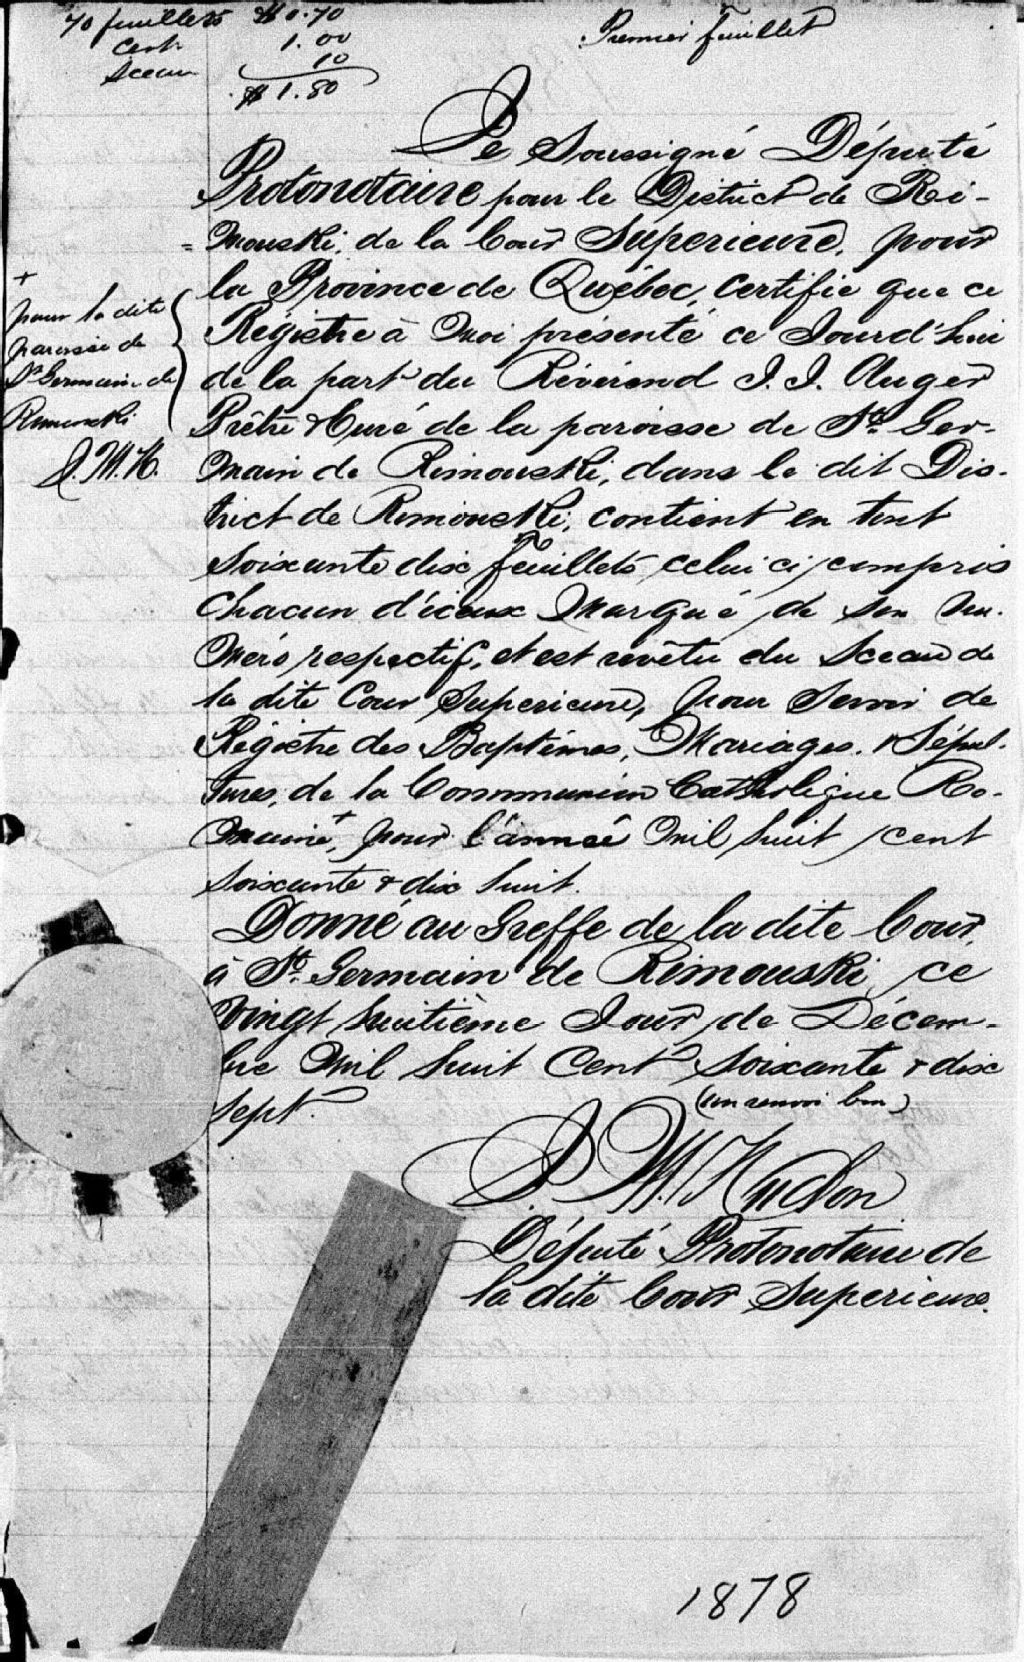 70 feuillets $0.70
Certt 1.00
Sceau 10
$1.80
Premier feuillet
Le Soussigné Député
Protonotaire pour le District de Ri-
=mouski, de la Cour Superieure, pour
la Province de Québec, certifie que ce
Régistre à moi présenté ce Jourd'hui
de la part du Révérend J. J. Auger
Prêtre & Curé de la paroisse de St. Ger-
main de Rimouski, dans le dit Dis-
trict de Rimouski, contient en tout
soixante dix feuillets celui ci compris
chacun d'iceux marqué de son nu-
méro respectif, et est revêtu du Sceau de
la dite Cour Superieure, pour servir de
Régistre des Baptêmes, Mariages & Sépul-
tures, de la Communion Catholique Ro-
maine+, pour l'année mil huit cent
soixante & dix huit.
+
pour la dite
paroisse de
St Germain de
Rimouski
J. M. H.
Donné au Greffe de la dite Cour,
à St. Germain de Rimouski, ce
vingt huitième Jour de Décem-
bre mil huit Cent soixante & dix
sept.
(un renvoi bon)
J. M. Hudon
Député Protonotaire de
la dite Cour Superieure.
1878